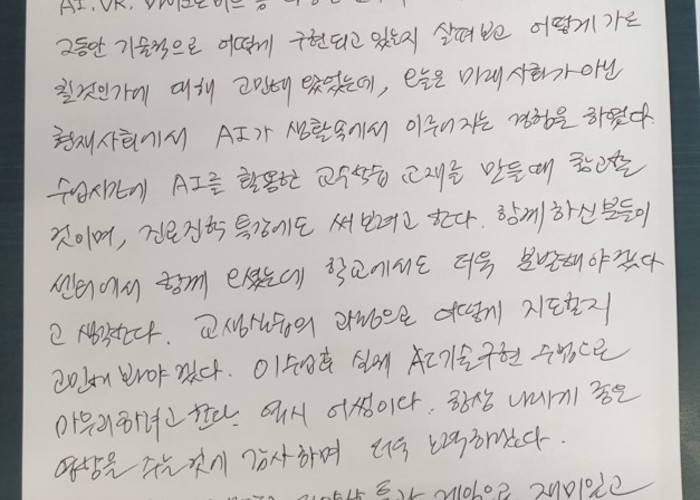 AI, VR,
그동안 기술적으로 어떻게 구현되고 있는지 살펴보고 어떻게 가르
칠것인가에 대해 고민해 왔었는데, 오늘은 미래사회가 아닌
현재사회에서 AI가 생활속에서 이루어지는 경험을 하였다.
수업시간에 AI를 활용한 교수학습 교재를 만들때 참고할
것이며, 진로진학 특강에도 써 보려고 한다. 함께 하신 분들이
센터에서 함께 오셨는데 학교에서도 더욱 분발해야겠다
고 생각한다. 교생실습의 과정으로 어떻게 지도할지
고민해 봐야겠다. 이수업후 실제 AI기술구현 수업으로
마무리하려고 한다. 역시 어썸이다. 항상 나에게 좋은
영향을 주는것에 감사하며 더욱 노력하겠다.
재미있고